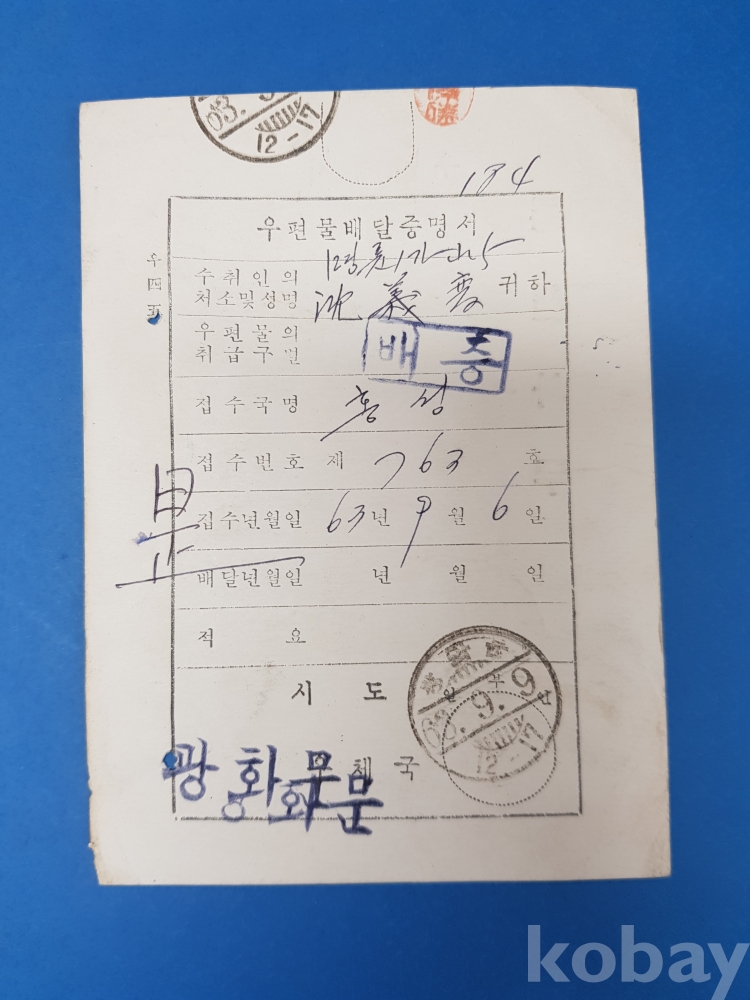 63.
12-17
184
우편물배달증명서
수취인의
처소및성명
沈義
귀하
우편물의
취급구별
배증
접수국명
홍성
접수번호 제 763 호
접수년월일 63년 9월 6일
배달년월일 년 월 일
적 요
시 도
63.9.9
12-17
체국
광화문
광화문
kobay